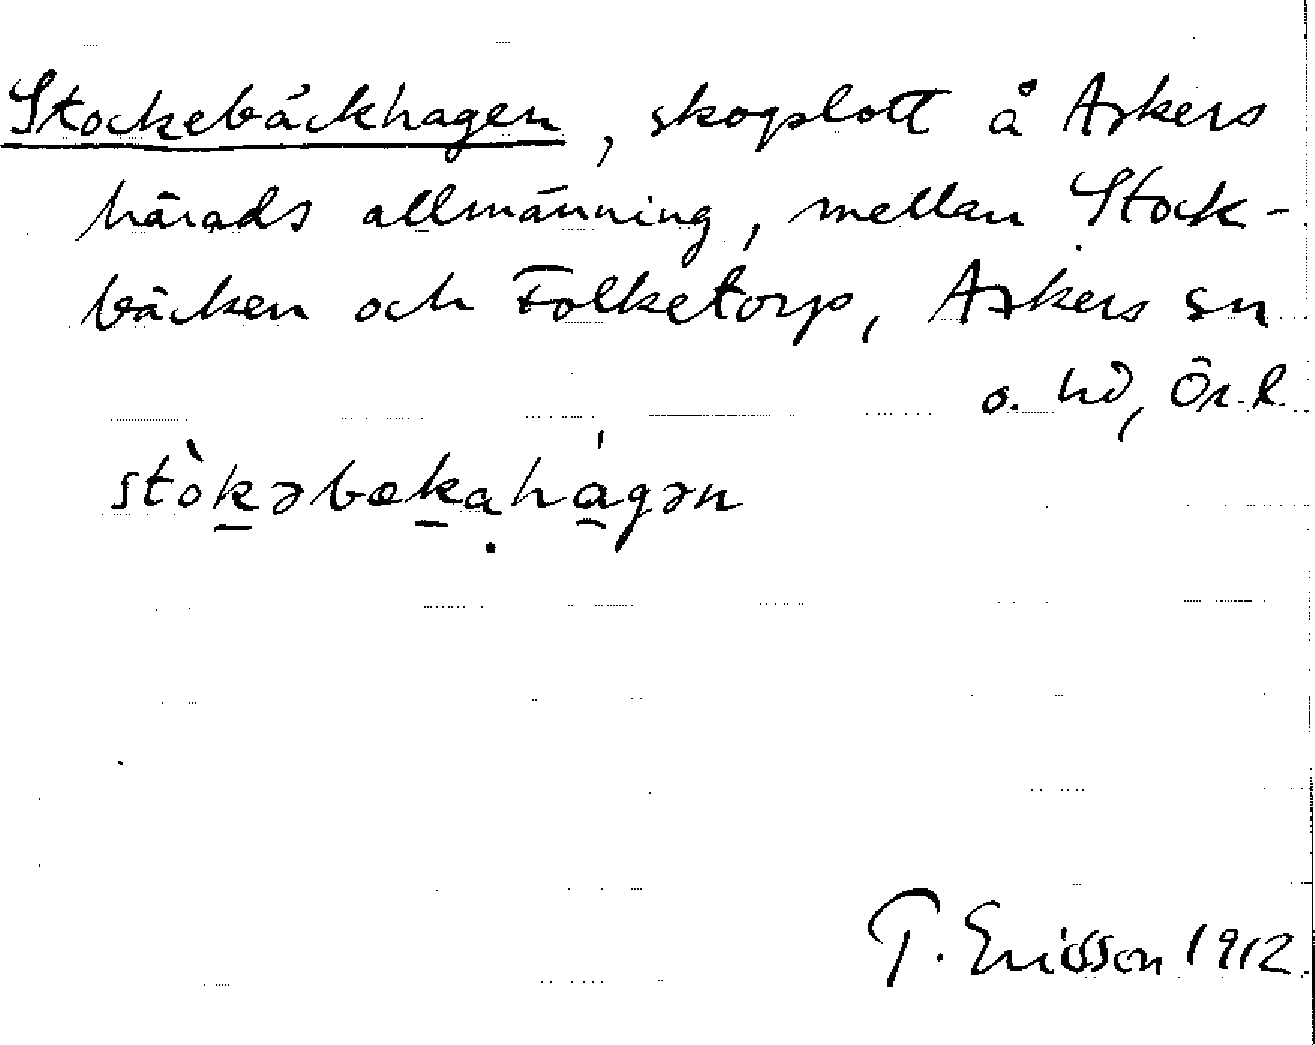 Stockebäckhagen, skogslott å Askers
härads allmänning, mellan Stock-
bäcken och Folketorp, Askers sn
o. hd, Ör. l.
stòkəbækahágən
T. Ericsson 1912